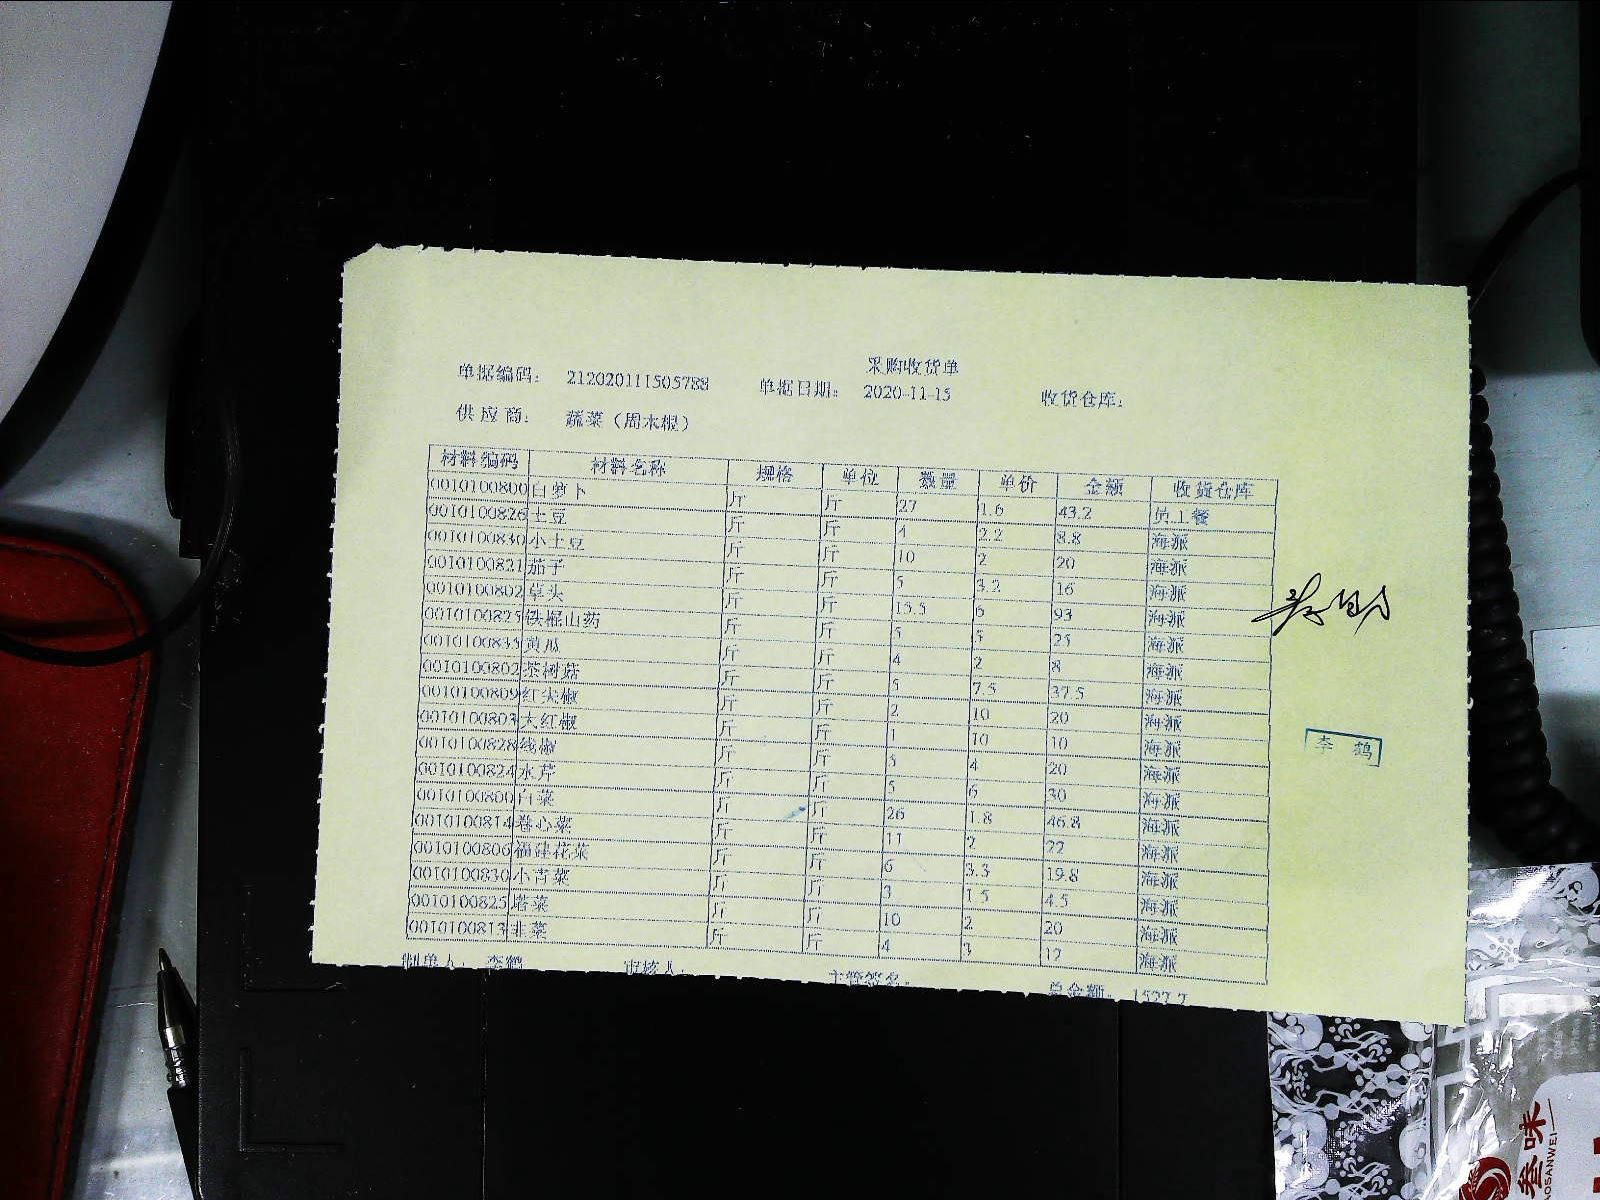 采购收货单
单据编码： 212020111505788 单据日期： 2020-11-15 收货仓库：
供应商： 蔬菜（周木根）
材料编码 材料名称 规格 单位 数量 单价 金额 收货仓库
0010100800 白萝卜 斤 斤 27 1.6 43.2 员工餐
0010100826 土豆 斤 斤 4 2.2 8.8 海派
0010100830 小土豆 斤 斤 10 2 20 海派
0010100821 茄子 斤 斤 5 3.2 16 海派
0010100802 草头 斤 斤 15.5 6 93 海派
0010100825 铁棍山药 斤 斤 5 5 25 海派
0010100833 黄瓜 斤 斤 4 2 8 海派
0010100802 茶树菇 斤 斤 5 7.5 37.5 海派
0010100809 红尖椒 斤 斤 2 10 20 海派
0010100803 大红椒 斤 斤 1 10 10 海派
0010100828 线椒 斤 斤 5 4 20 海派
0010100824 水芹 斤 斤 5 6 30 海派
0010100800 白菜 斤 斤 26 1.8 46.8 海派
0010100814 卷心菜 斤 斤 11 2 22 海派
0010100806 福建花菜 斤 斤 6 3.3 19.8 海派
0010100830 小青菜 斤 斤 3 1.5 4.5 海派
0010100825 塔菜 斤 斤 10 2 20 海派
0010100813 韭菜 斤 斤 4 3 12 海派
制单人： 李鹤 审核人： 主管签名： 总金额： 1527.7
李 鹤
叁味
OSANWEI